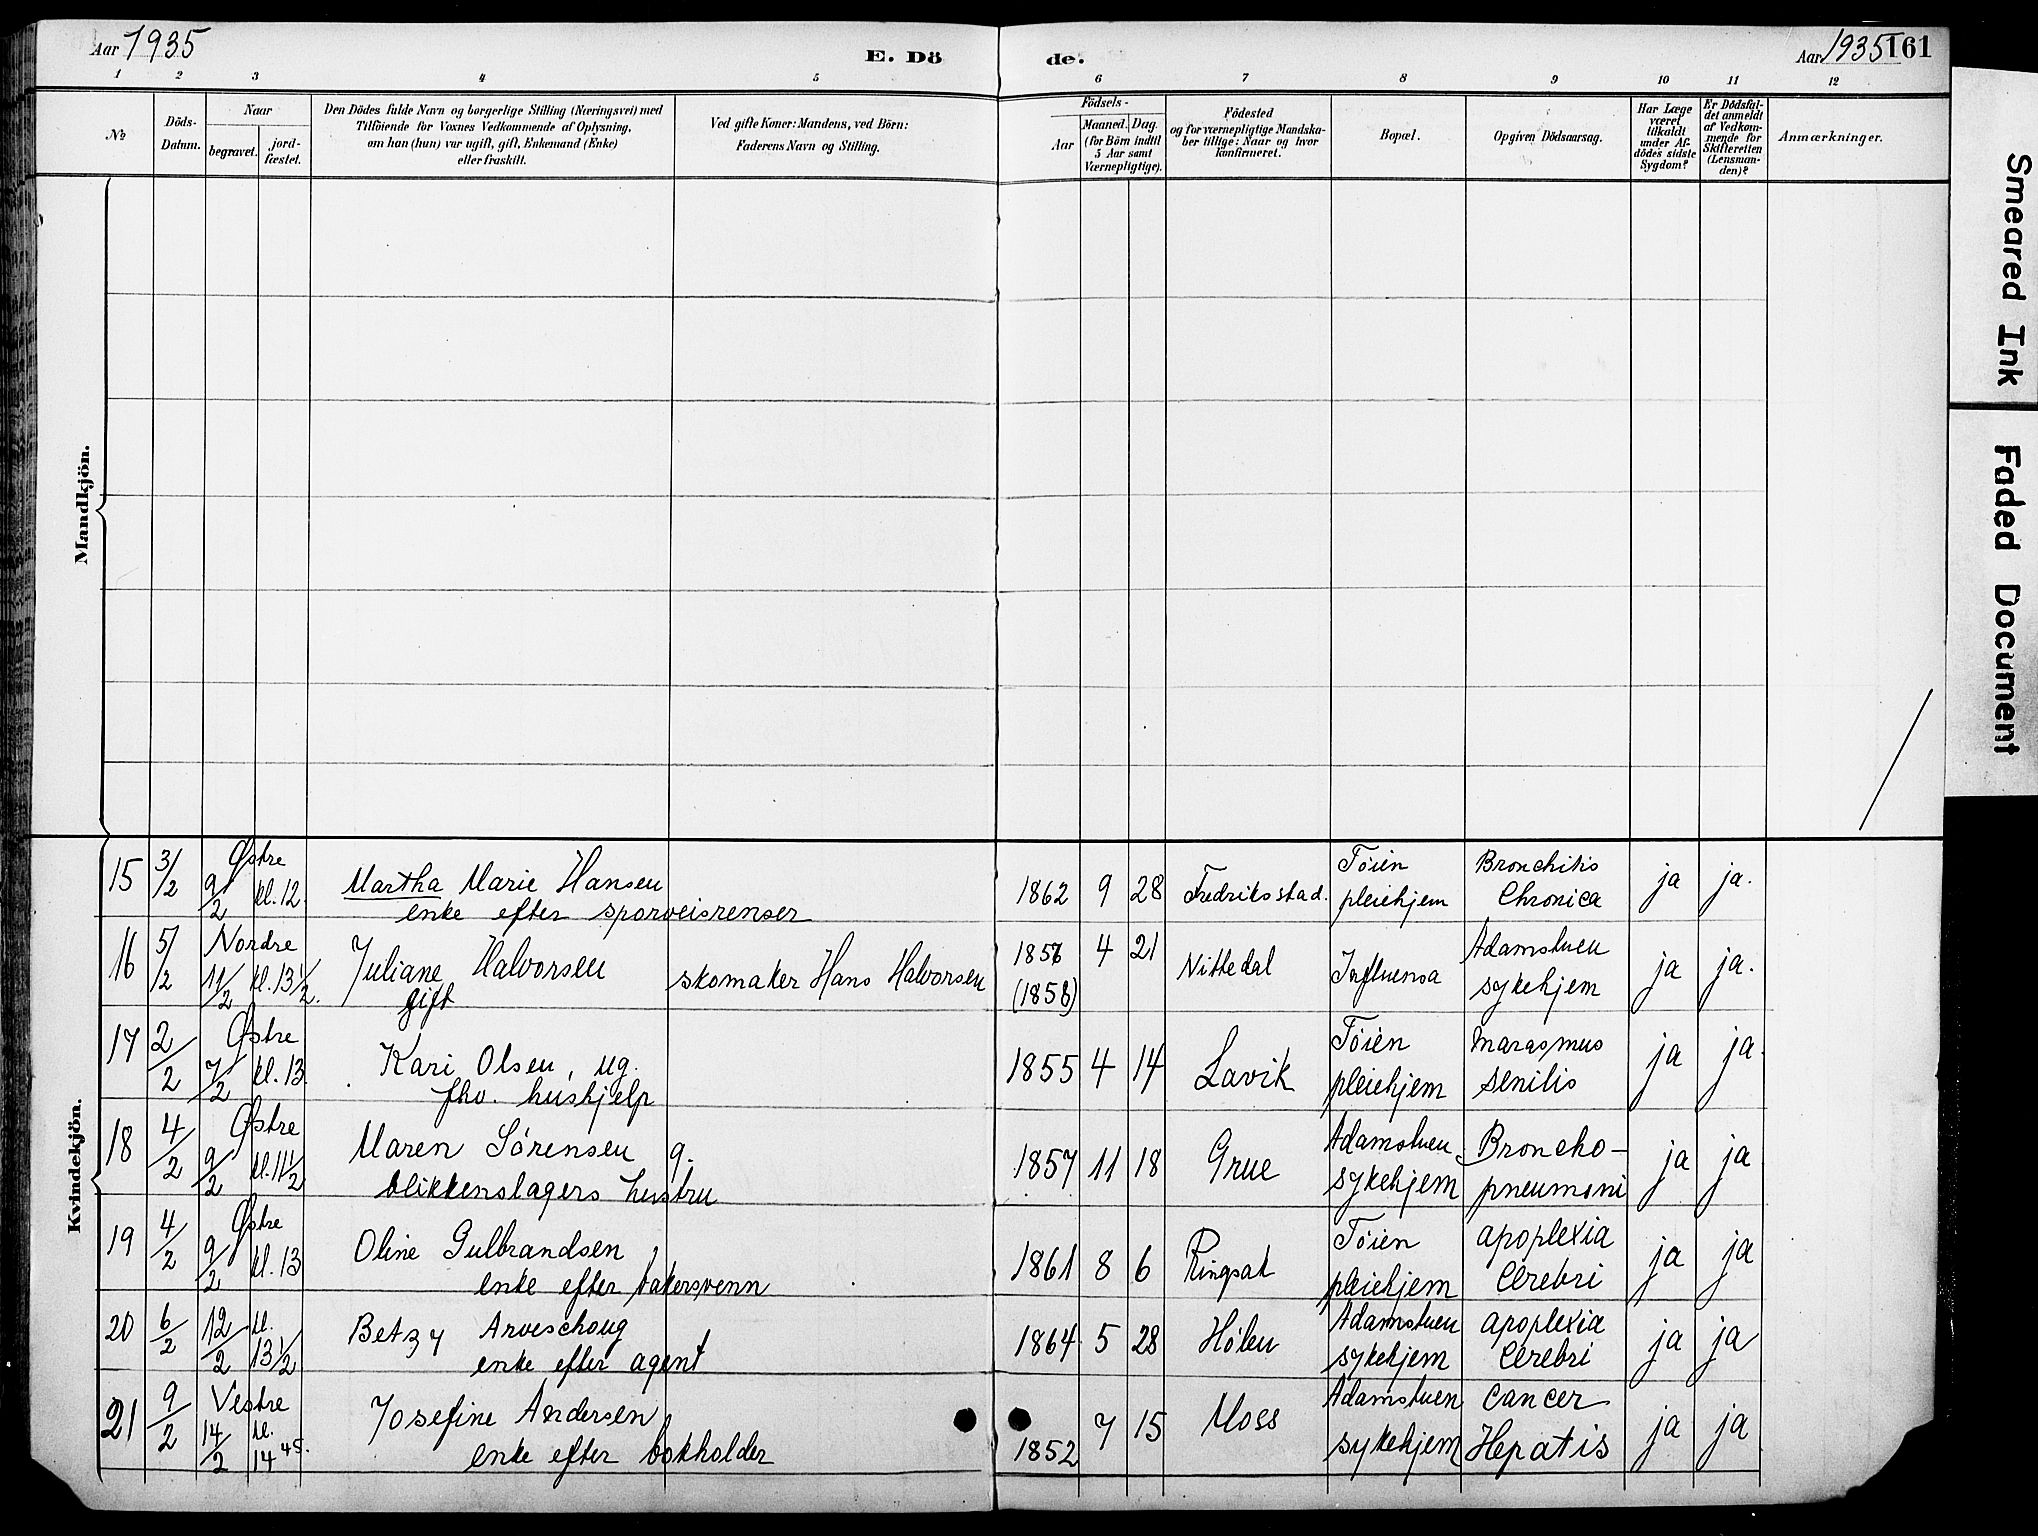 Aar 1935
E. Dö
de.
Aar 1935 161
1 2 3 4 5 6 7 8 9 10 11 12
No
Döds-
Datum.
Naar
begravet.
jord-
fæstet.
Den Dödes fulde Navn og borgerlige Stilling (Næringsvei) med
Tilföiende for Voxnes Vedkommende af Oplysning,
om han (hun) var ugift, gift, Enkemand (Enke)
eller fraskilt.
Ved gifte Koner: Mandens, ved Börn:
Faderens Navn og Stilling.
Födsels-
Aar
Maaned. Dag.
(for Börn indtil
5 Aar samt
Værnepligtige).
Födested
og for værnepligtige Mandska-
ber tillige: Naar og hvor
konfirmeret.
Bopæl.
Opgiven Dödsaarsag.
Har Læge
været
tilkaldt
under Af-
dödes sidste
Sygdom?
Er Dödsfal-
det anmeldt
af Vedkom-
mende for
Skifteretten
(Lensman-
den)?
Anmærkninger.
Mandkjön.
Kvindekjön.
15 3/2 Østre 9/2 kl. 12. Martha Marie Hansen
enke efter sporveisrenser
1862 9 28 Fredriksstad. Tøien
pleiehjem
Bronchitis
Chronica
ja ja.
16 5/2 Nordre 11/2 kl. 13 1/2. Juliane Halvorsen
gift
skomaker Hans Halvorsen
1856 4 21
(1858)
Nittedal Influensa Adamstuen
sykehjem
ja ja.
17 2/2 Østre 7/2 kl. 13. Kari Olsen, ug.
fhv. huskjelp
1855 4 14 Lavik Tøien
pleiehjem
Marasmus
senilis
ja ja.
18 4/2 Østre 9/2 kl. 11 1/2 Maren Sørensen g.
blikkenslagers hustru
1857 11 18 Grue Adamstuen
sykehjem
Broncho-
pneumoni
ja ja
19 4/2 Østre 9/2 kl. 13 Oline Gulbrandsen
enke efter bakersvenn
1861 8 6 Ringsak Tøien
pleiehjem
apoplexia
Cerebri
ja ja
20 6/2 12/2 kl. 13 1/2 Betzy Arveschoug
enke efter agent
1864 5 28 Hølen Adamstuen
sykehjem
apoplexia
Cerebri
ja ja
21 9/2 Vestre 14/2 kl. 14 45. Josefine Andersen
enke efter bokholder
1852 7 15 Moss Adamstuen
sykehjem
Cancer
Hepatis
ja ja
Smeared Ink
Faded Document